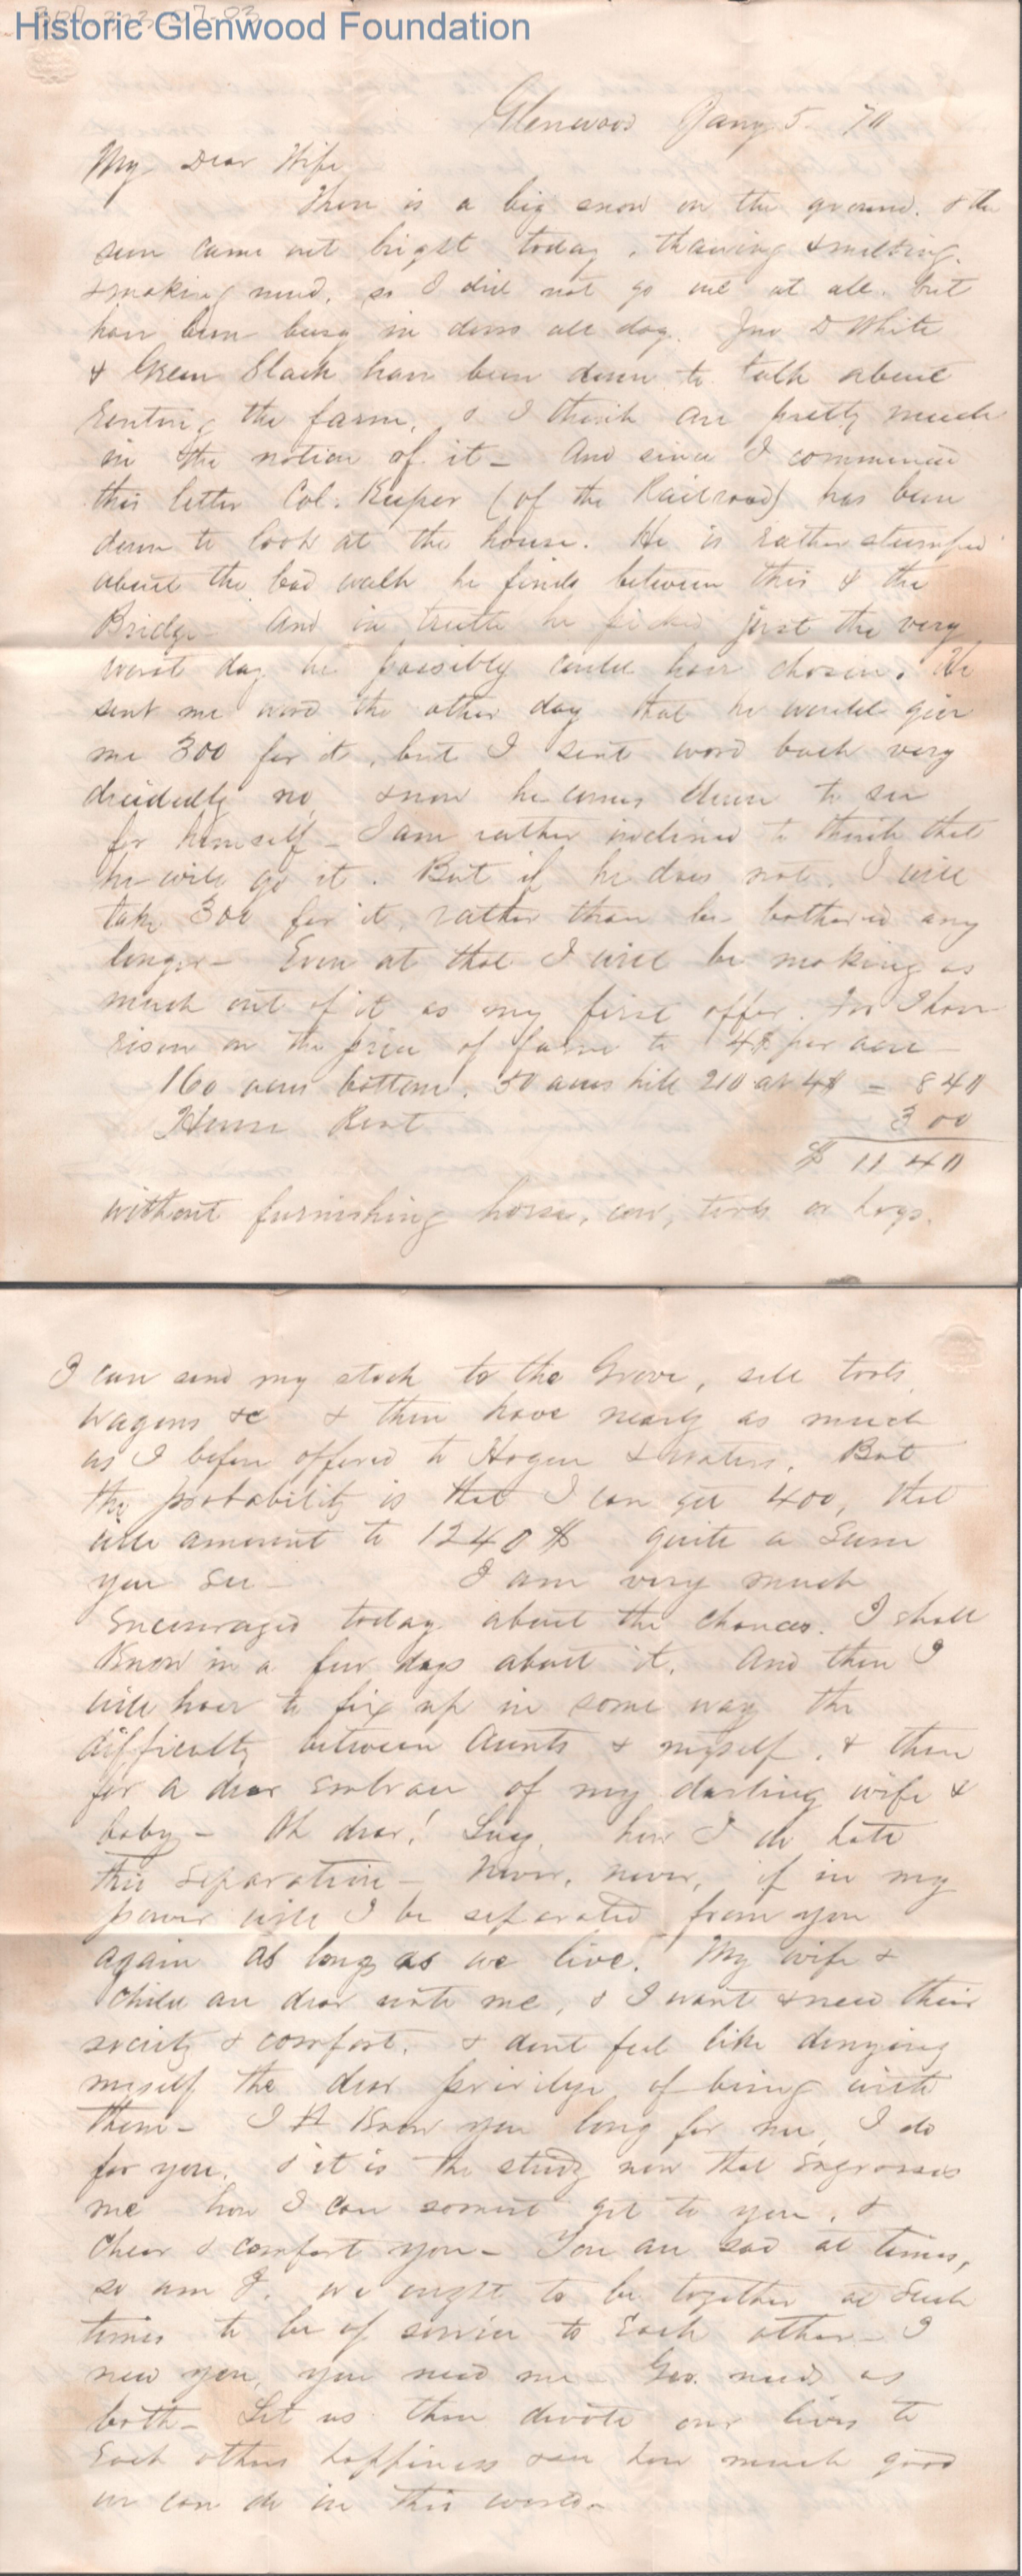 Historic Glenwood Foundation
Glenwood Jany 5. 70
My Dear Wife
There is a big snow on the ground. & the
sun came out bright today, thawing & melting.
& making mud, so I did not go out at all. but
have been busy in doors all day. Jno D White
& Green Slack have been down to talk about
renting the farm, & I think are pretty much
in the notion of it - And since I commenced
this letter Col. (of the Railroad) has been
down to look at the house. He is rather stumped
about the bad walk he finds between this & the
Bridge - And in truth he picked just the very
worst day he possibly could have chosen. He
sent me word the other day that he would give
me 300 for it, but I sent word back very
decidedly no, & now he comes down to see
for himself - I am rather inclined to think that
he will go it. But if he does not, I will
take 300 for it, rather than be bothered any
longer - Even at that I will be making as
much out of it as my first offer. For I have
risen on the price of farm to 4$ per acre -
160 acres bottom. 50 acres hill 210 at 4$ = 840
House Rent 300
$ 1140
without furnishing horse, cow, tools or hogs.
I can send my stock to the Grove, sell tools,
wagons &c & then have nearly as much
as I before offered to Hogue & Waters. But
the probability is that I can get 400, that
will amount to 1240$ quite a sum
you see - I am very much
encouraged today about the chances. I shall
Know in a few days about it. And then I
will have to fix up in some way the
difficulty between Aunts & myself. & then
for a dear embrace of my darling wife &
baby - Oh dear! Lucy, how I do hate
this separation - Never, never, if in my
power will I be separated from you
again as long as we live. My wife &
child are dear unto me, & I want & need their
society & comfort. & dont feel like denying
myself the dear privilege of being with
them - I Know you long for me, I do
for you, & it is the study now that engrosses
me how I can soonest get to you, &
cheer & comfort you - You are sad at times,
so am I. we ought to be together at such
times to be of service to Each other - I
need you, you need me Geo. needs us
both - Let us then devote our lives to
Each others happiness & see how much good
we can do in this world -